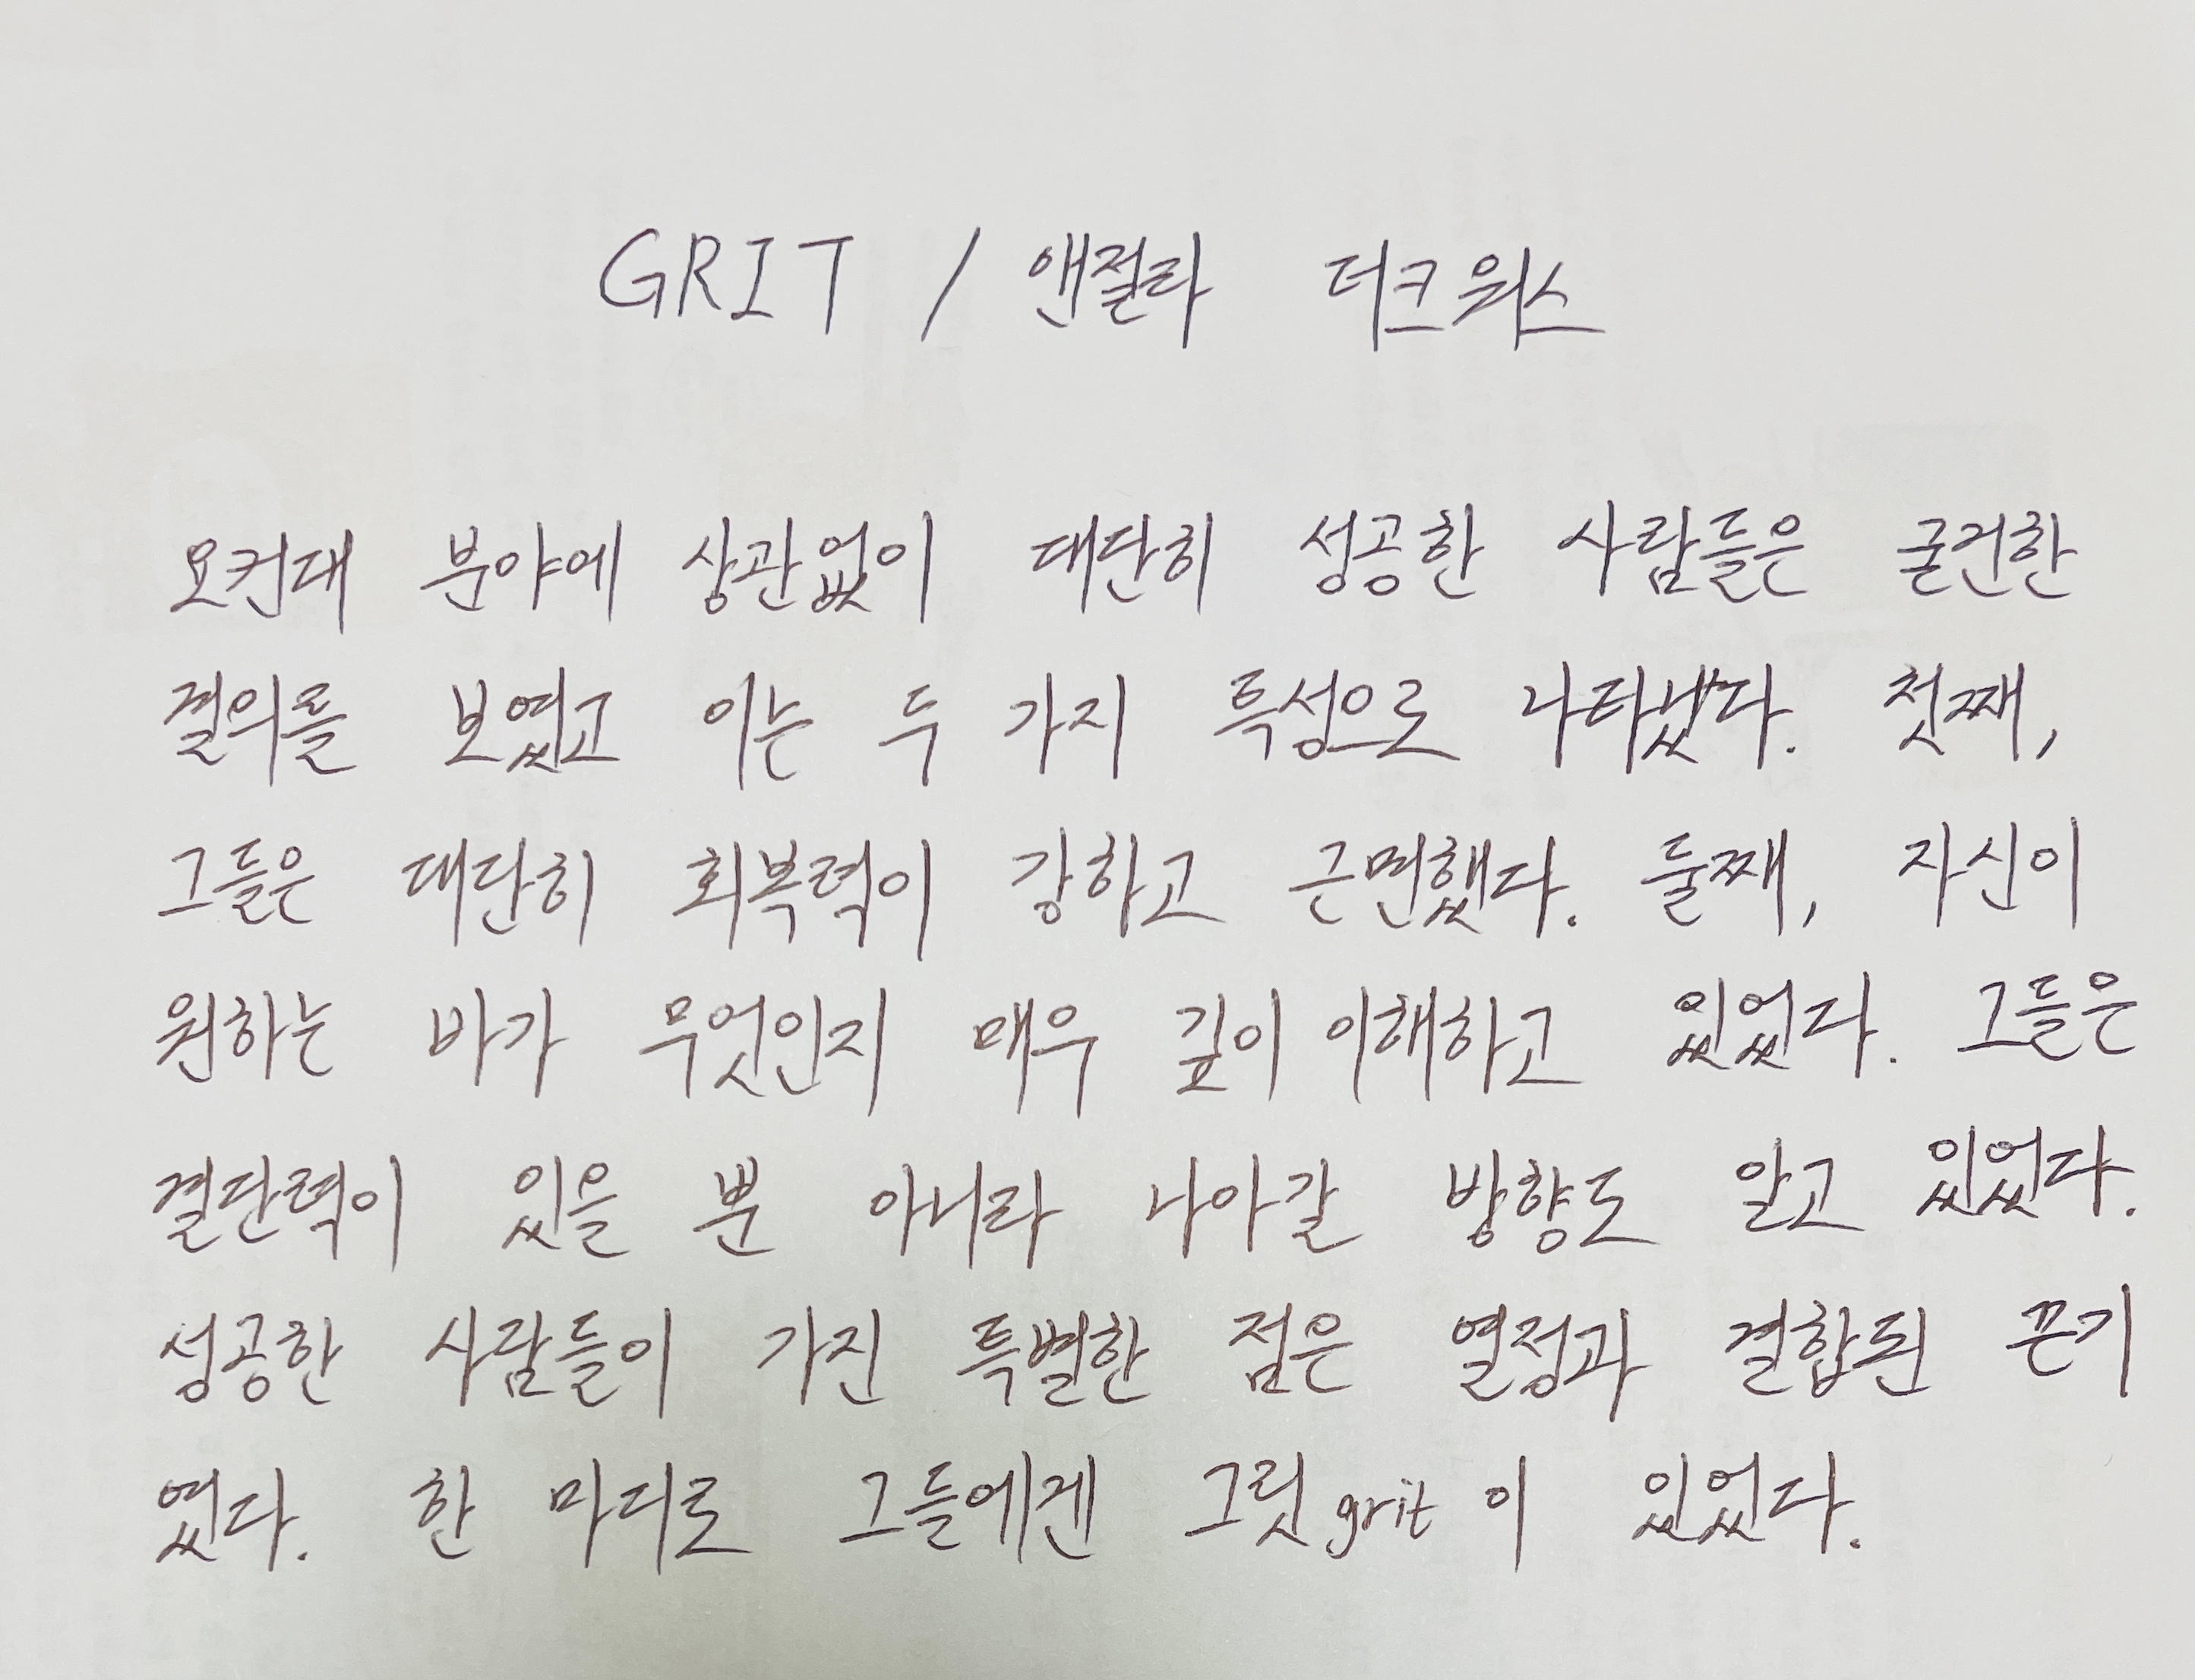 GRIT / 앤절라 더크워스
요컨대 분야에 상관없이 대단히 성공한 사람들은 굳건한
결의를 보였고 이는 두 가지 특성으로 나타났다. 첫째,
그들은 대단히 회복력이 강하고 근면했다. 둘째, 자신이
원하는 바가 무엇인지 매우 깊이 이해하고 있었다. 그들은
결단력이 있을 뿐 아니라 나아갈 방향도 알고 있었다.
성공한 사람들이 가진 특별한 점은 열정과 결합된 끈기
였다. 한 마디로 그들에겐 그릿 grit 이 있었다.